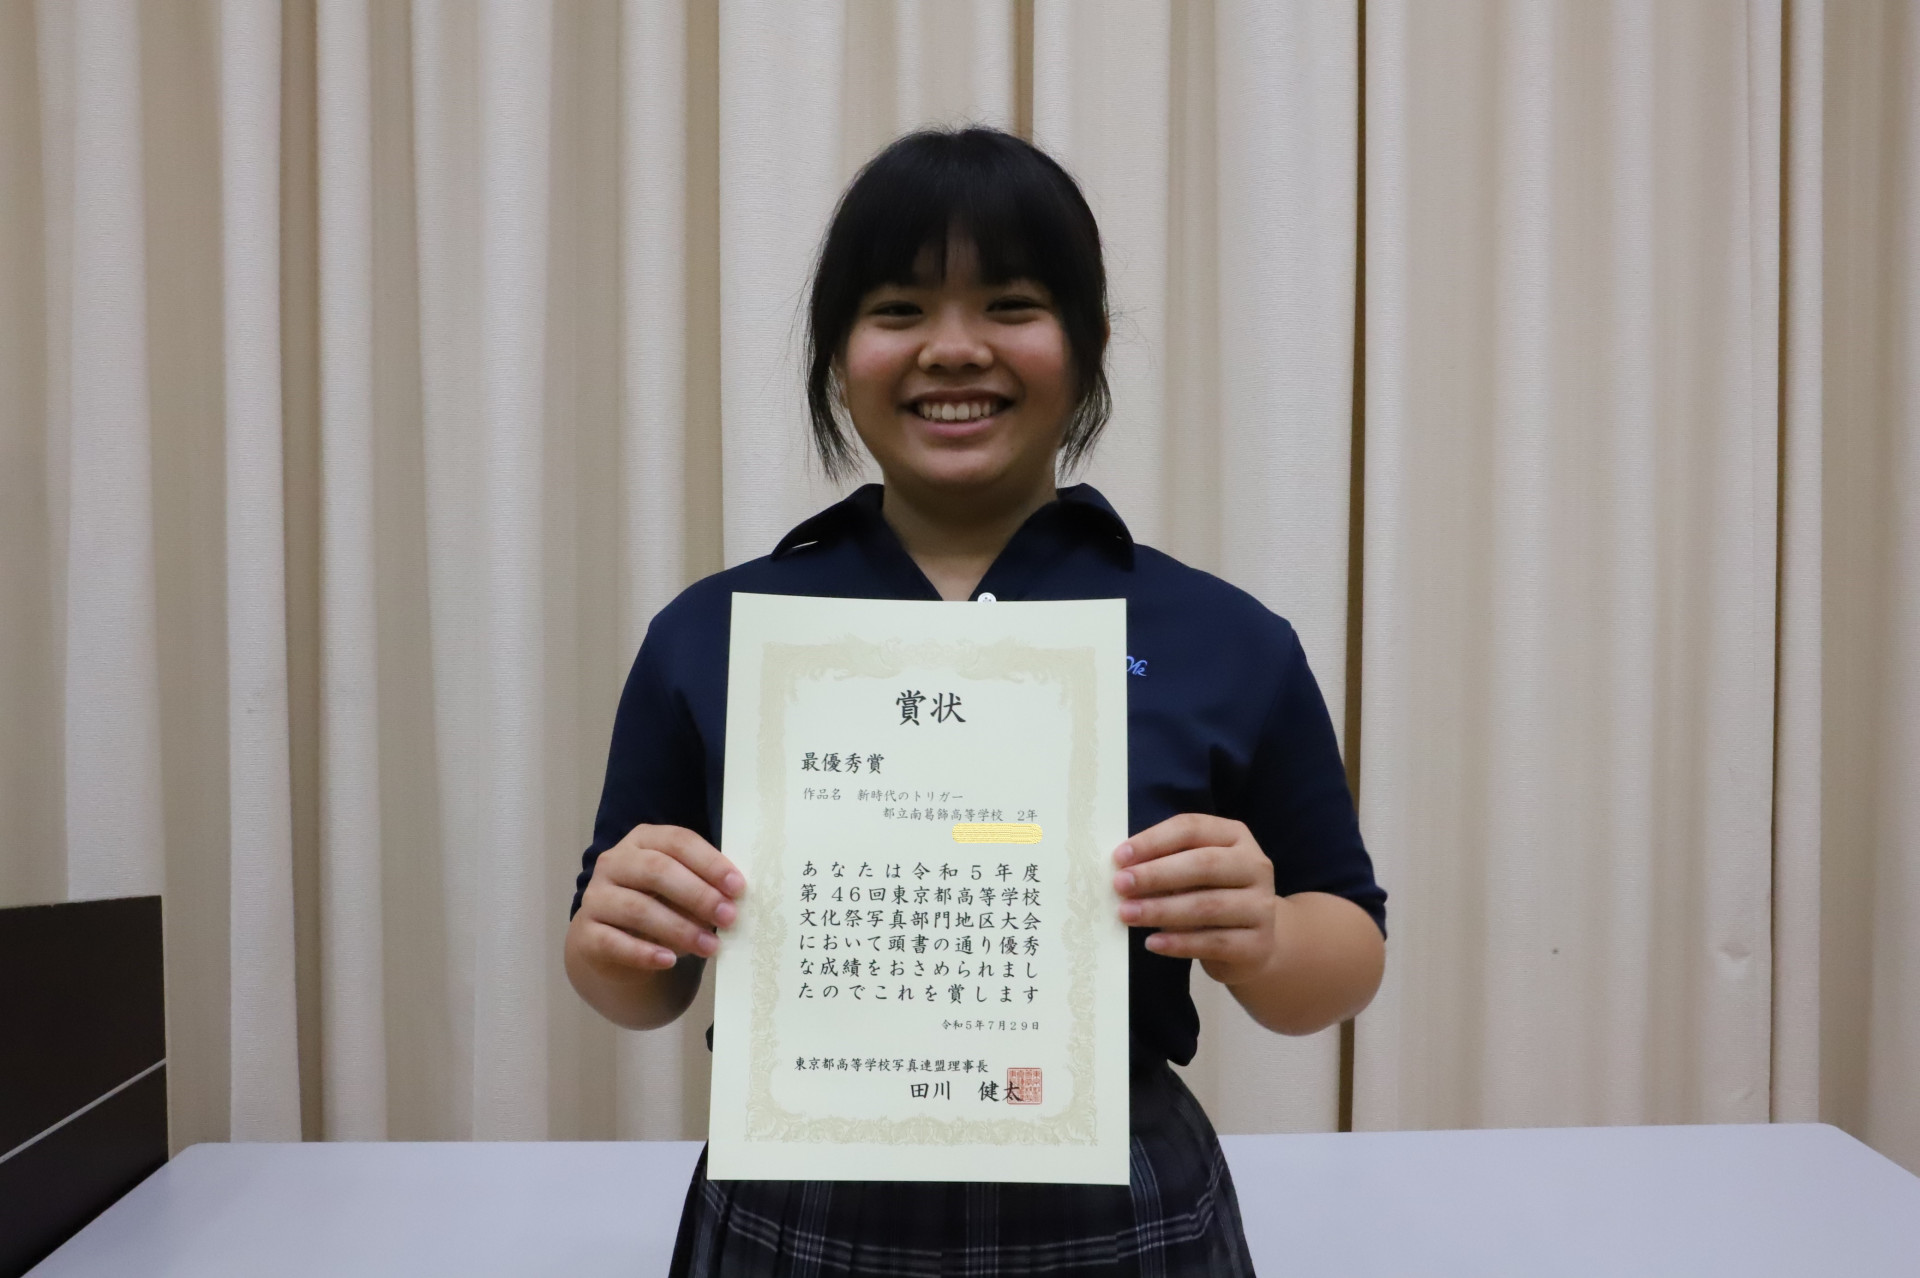 賞状
最優秀賞
作品名 新時代のトリガー
都立南葛飾高等学校 2年
あなたは令和5年度
第46回東京都高等学校
文化祭写真部門地区大会
において頭書の通り優秀
な成績をおさめられまし
たのでこれを賞します
令和5年7月29日
東京都高等学校写真連盟理事長
田川 健太